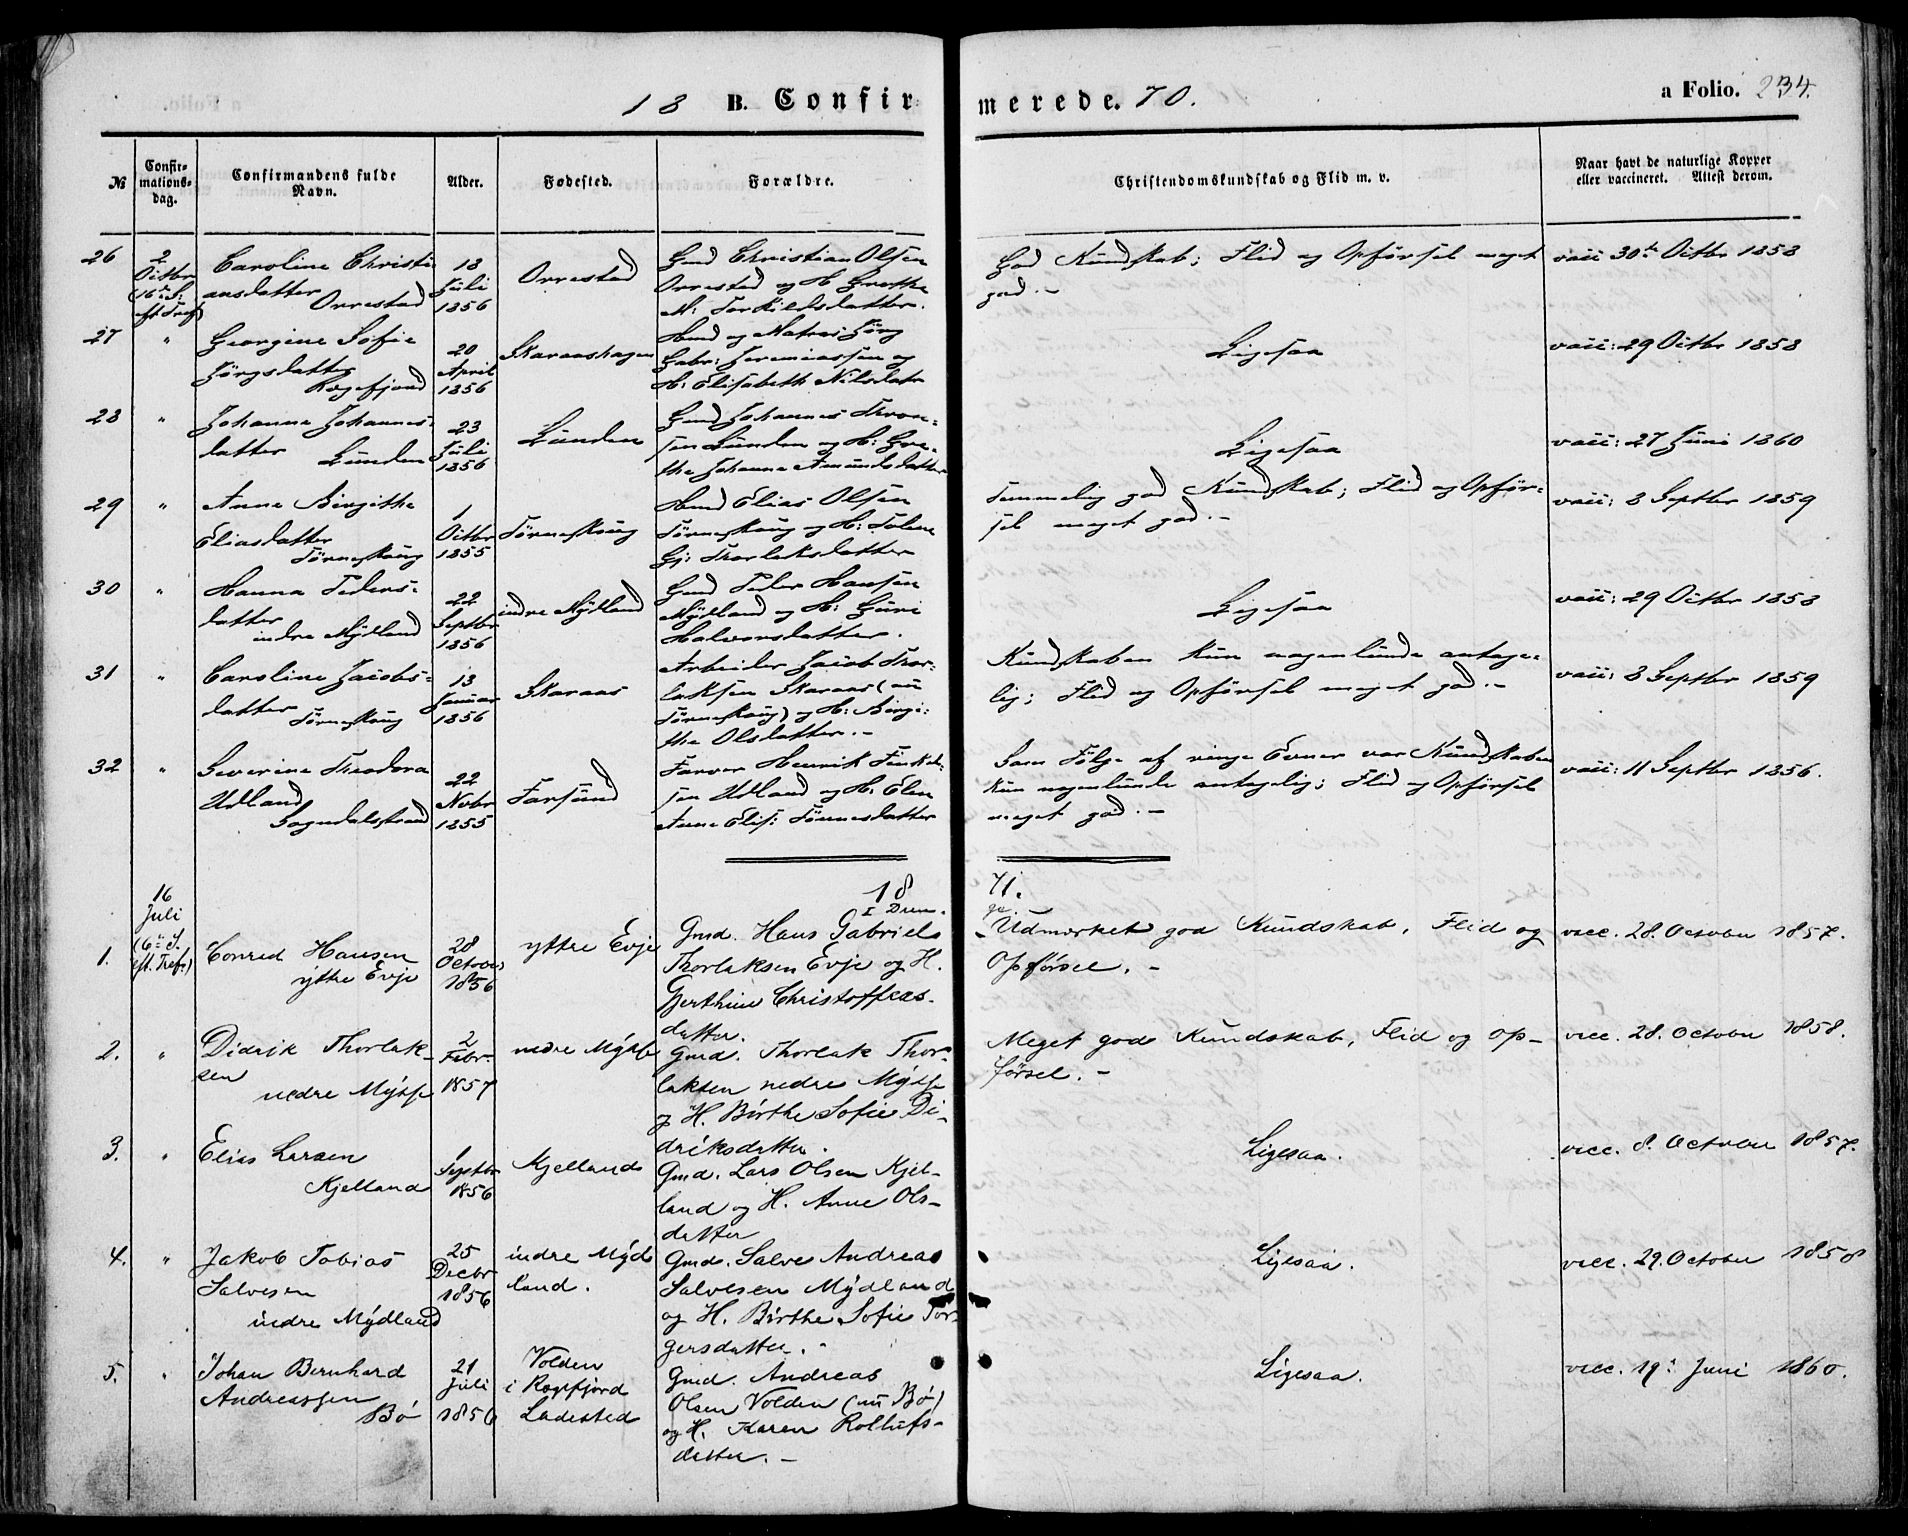 18 B. Confirmerede. 70.
a Folio. 234.
№
Confirmations-
dag.
Confirmandens fulde
Navn.
Alder.
Fødested.
Forældre.
Christendomskundskab og Flid m. v.
Naar havt de naturlige Kopper
eller vaccineret. Attest derom.
26
2
Octbr
(16de S.
eft. Tref)
Caroline Christi
ansdatter
Orrestad
18
Juli
1856
Orrestad
Gmd Christian Olsen
Orrestad og H. Grethe
M. Torkildsdatter.
God Kundskab; Flid og Opførsel meget
god.-
vacc 30te Octbr 1858
27
"
Georgine Sofie
Jörgsdatter
Rægefjord
20
April
1856
Skaraashagen
Hmd og Matros Jörg
Gabr: Jeremiassen og
H: Elisabeth Nilsdatr
Ligesaa
vacc: 29 Octbr 1858
28
"
Johanna Johannes-
datter
Lunden
23
Juli
1856
Lunden
Gmd Johannes Tron-
sen Lunden og H: Gre-
the Johanne Amundsdatter
Ligesaa
vacc: 27 Juni 1860
29
"
Anne Birgithe
Eliasdatter
Törneskoug
1
Octbr
1855
Törneskoug
Hmd Elias Olsen
Törneskoug og H: Tolene
Gj: Thorlaksdatter
Temmelig god Kundskab; Flid og Opfør-
sel meget god.-
vacc: 8 Septbr 1859
30
"
Hanna Peders-
datter
indre Mydland
22
Septbr
1856
indre Mydland
Gmd Peder Hansen
Mydland og H: Guri
Halvorsdatter.
Ligesaa
vacc: 29 Octbr 1858
31
"
Caroline Jacobs-
datter
Törneskoug
13
Januar
1856
Skaraas
Arbeider Jacob Thor-
laksen Skaraas (nu
Törneskoug) og H: Birgi-
the Olsdatter.-
Kundskaben kun nogenlunde antage-
lig; Flid og Opførsel meget god.-
vacc: 8 Septbr 1859
32
"
Severine Theodora
Udland
Sogndalsstrand
22
Novbr
1855
Farsund
Farver Henrik Finkel-
sen Udland og H: Elen
Anne Elis: Tönnesdatter
Som Følge af ringe Evner var Kundskaben
kun nogenlunde antagelig; Flid og Opførsel
meget god.-
vacc: 11 Septbr 1856.
18 71.
1.
16
Juli
(6te S.
eft. Tref:)
Conrad Hansen
yttre Evje
28
October
1856
yttre Evje
Gmd. Hans Gabriel
Thorlaksen Evje og H.
Gjerthine Christoffers-
datter.
Udmærket god Kundskab, Flid og
Opførsel.-
vacc. 28. October 1857.
2.
"
Didrik Thorlak-
sen
nedre Mysse
2
Febr.
1857
nedre Mysse
Gmd. Thorlak Thor-
laksen nedre Mysse
og H. Birthe Sofie Di-
driksdatter.
Meget god Kundskab, Flid og Op-
førsel.-
vacc. 28. October 1858.
3.
"
Elias Larsen
Kjelland
1
Septbr
1856
Kjelland
Gmd. Lars Olsen Kjel-
land og H. Anne Ols-
datter
Ligesaa.
vacc. 8. October 1857.
4.
"
Jakob Tobias
Salvesen
indre Mydland
25
Decbr
1856
indre Myd
land.
Gmd. Salve Andreas
Salvesen Mydland
og H. Birthe Sofie Tor-
gersdatter.-
Ligesaa.
vacc. 29. October 1858
5.
"
Johan Bernhard
Andreassen
Bø
21
Juli
1856
Volden
i Rægefjord
Ladested
Gmd. Andreas
Olsen Volden (nu Bø)
og H. Karen Rollufs-
datter.-
Ligesaa.
vacc. 19de Juni 1860.